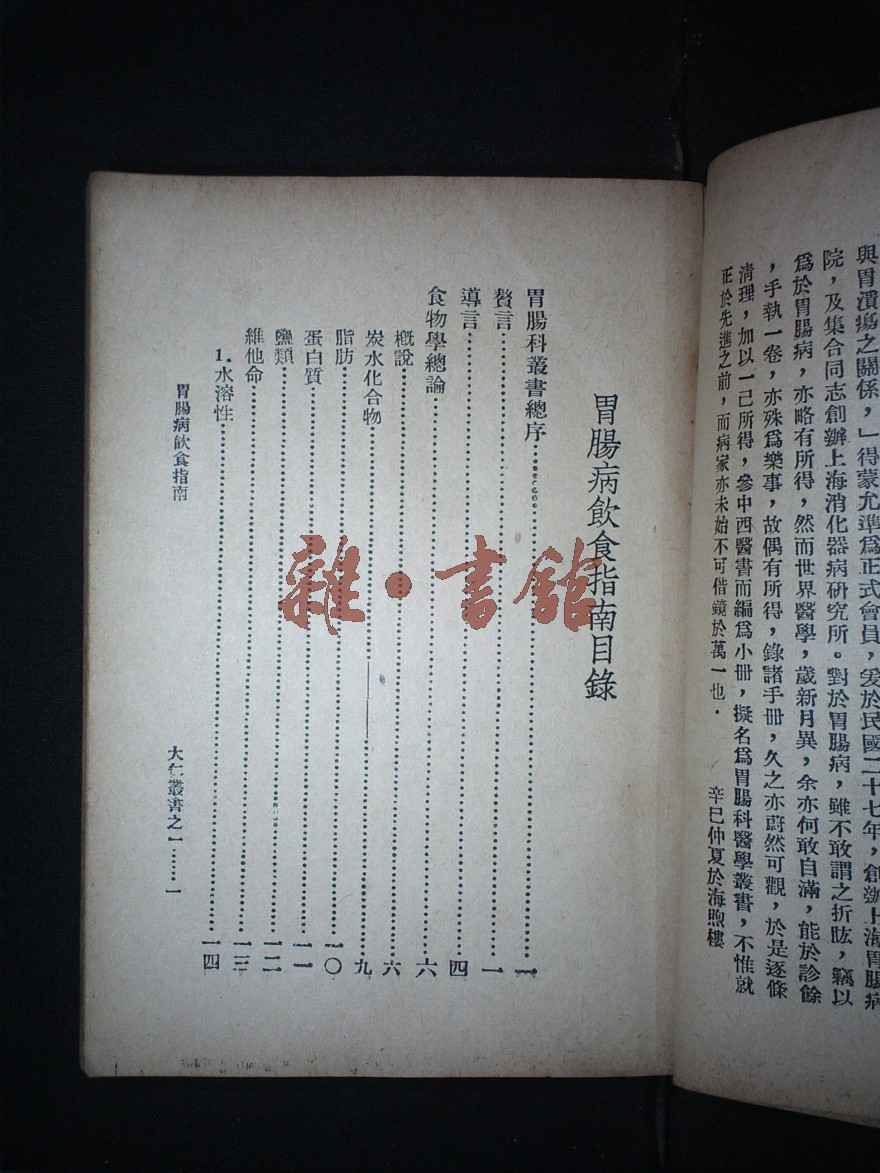 與胃潰瘍之關係,」得蒙允準爲正式會員,爰於民國二十七年,創辦上海胃腸病
院,及集合同志創辦上海消化器病研究所。對於胃腸病,雖不敢謂之折肱,竊以
爲於胃腸病,亦略有所得,然而世界醫學,歲新月異,余亦何敢自滿,能於診餘
,手執一卷,亦殊爲樂事,故偶有所得,錄諸手冊,久之亦蔚然可觀,於是逐條
清理,加以一己所得,參中西醫書而編爲小冊,擬名爲胃腸科醫學叢書,不惟就
正於先進之前,而病家亦未始不可借鏡於萬一也.
辛巳仲夏於海煦樓
胃腸病飲食指南目錄
胃腸科叢書總序……一
贅言……一
導言……四
食物學總論……六
概說……六
炭水化合物……九
脂肪……一〇
蛋白質……一一
鹽類……一二
維他命……一三
1.水溶性……一四
胃腸病飲食指南
大仁叢書之一……一
雜·書館